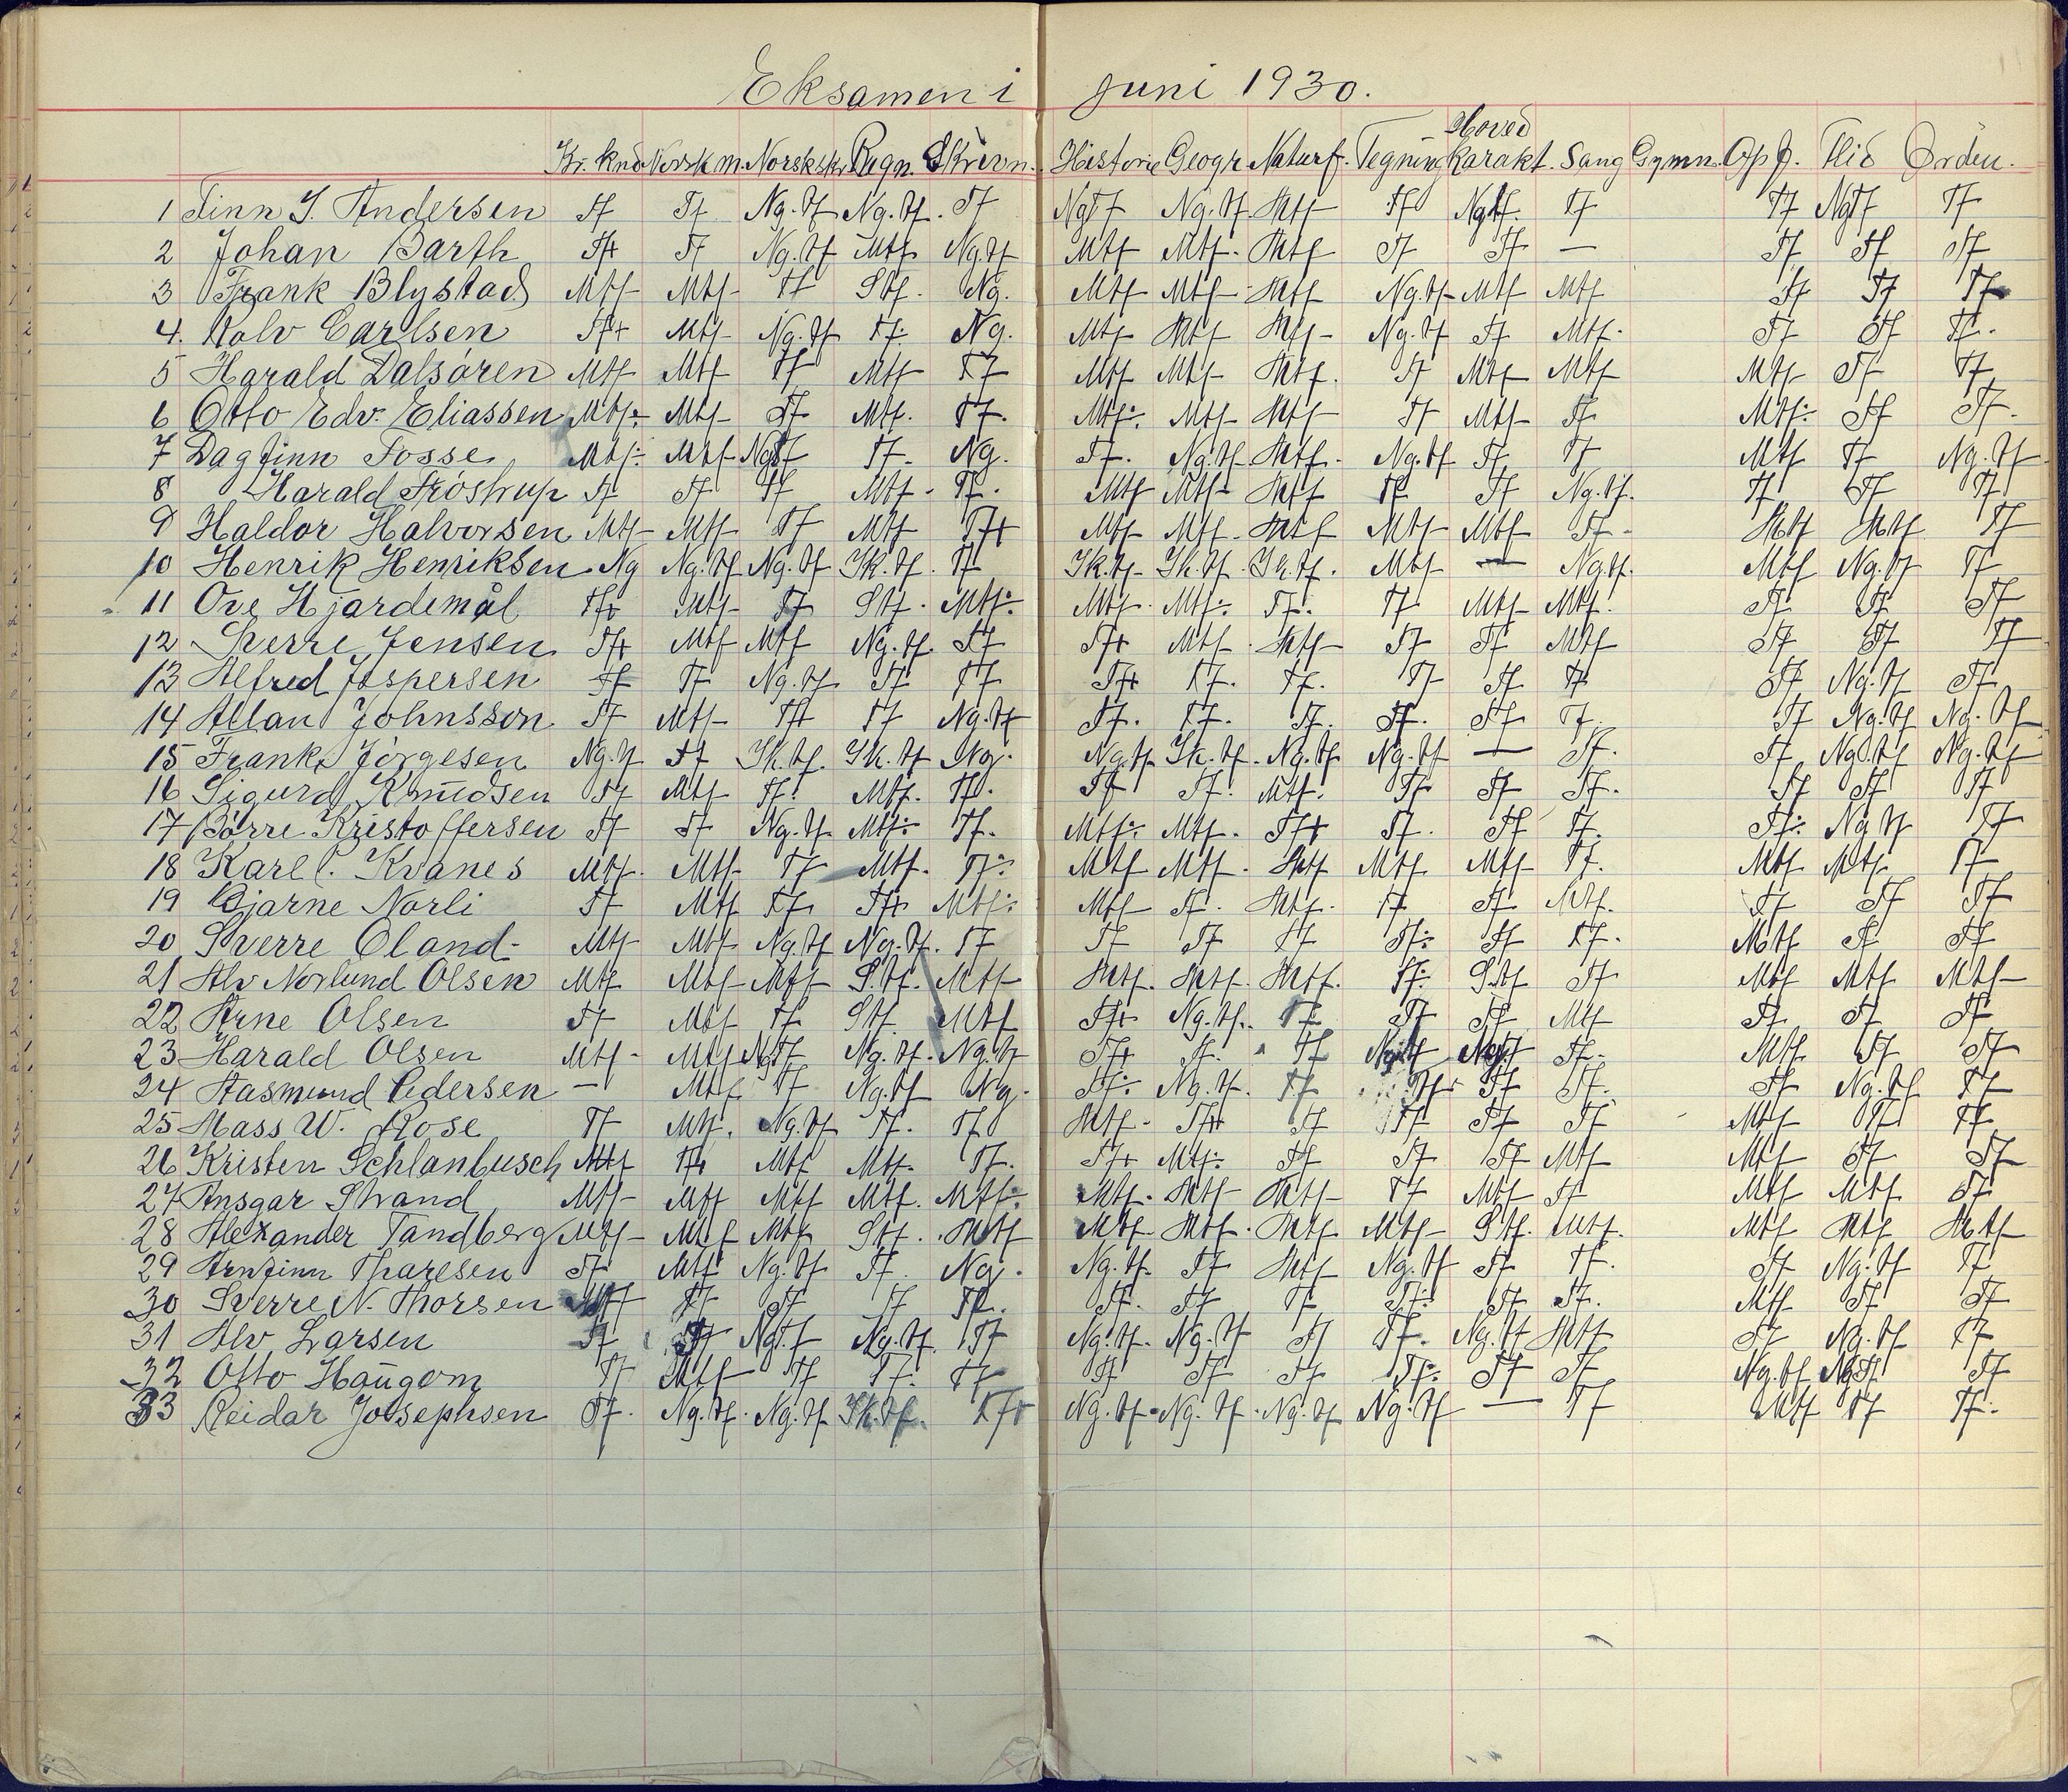 Eksamen i juni 1930.
Hoved
Kr. knd Norsk m. Norsk skr. Regn. Skrivn. Historie Geogr Naturf. Tegning karakt. Sang Gymn. Opf. Flid Orden.
1 Finn J. Andersen Tf Tf Ng.tf Ng.tf. Tf NgTf Ng.tf. Mtf Tf Ngtf. Tf Tf NgTf Tf
2 Johan Barth Tf+ Tf Ng.tf Mtf Ng.tf Mtf Mtf. Mtf Tf Tf — Tf Tf Tf
3 Frank Blystad Mtf Mtf Tf Stf. Ng. Mtf Mtf Mtf Ng.tf Mtf Mtf Tf Tf Tf
4. Rolv Carlsen Tf+ Mtf Ng.tf Tf. Ng. Mtf Mtf Mtf Ng.tf Tf Mtf. Tf Tf Tf.
5 Harald Dalsøren Mtf Mtf Tf Mtf Tf Mtf Mtf Mtf. Tf Mtf Mtf Mtf Tf Tf
6 Otto Edv. Eliassen Mtf÷ Mtf Tf Mtf. Tf. Mtf÷ Mtf Mtf Tf Mtf Tf Mtf÷ Tf Tf.
7 Dagfinn Fosse Mtf÷ Mtf NgTf Tf. Ng. Tf. Ng.tf. Mtf. Ng.tf Tf Tf Mtf Tf Ng.tf
8 Harald Frøstrup Tf Tf Tf Mtf. Tf. Mtf Mtf Mtf Tf Tf Ng.tf. Tf Tf Tf
9 Haldor Halvorsen Mtf Mtf Tf Mtf Tf+ Mtf Mtf. Mtf Mtf Mtf Tf Mtf Mtf Tf
10 Henrik Henriksen Ng Ng.tf Ng.tf Ik.tf. Tf Ik.tf Ik.tf. Ik.tf. Mtf — Ng.tf. Mtf Ng.tf Tf
11 Ove Hjardemål Tf+ Mtf Tf Stf. Mtf÷ Mtf. Mtf÷ Tf. Tf Mtf Mtf. Tf Tf Tf
12 Sverre Jensen Tf+ Mtf Mtf Ng.tf. Tf Tf+ Mtf. Mtf Tf Tf Mtf Tf Tf Tf
13 Alfred Jespersen Tf Tf Ng.tf Tf Tf Tf+ Tf. Tf. Tf Tf Tf Tf Ng.tf Tf
14 Allan Johnsson Tf Mtf Tf Tf Ng.tf Tf. Tf. Tf. Tf. Tf Tf. Tf Ng.tf Ng.tf
15 Frank Jørgesen Ng.tf Tf Ik.tf. Ik.tf Ng. Ng.tf Ik.tf. Ng.tf Ng.tf — Tf. Tf Ng.tf Ng.tf
16 Sigurd Knudsen Tf Mtf Tf. Mtf. Tf. Tf Tf. Mtf. Tf Tf Tf. Tf Tf Tf
17 Børre Kristoffersen Tf Tf Ng.tf Mtf÷ Tf. Mtf÷ Mtf. Tf+ Tf. Tf Tf. Tf÷ Ng.tf Tf
18 Karel C. Kvanes Mtf. Mtf Tf Mtf. Tf÷ Mtf Mtf. Mtf Mtf Mtf Tf. Mtf Mtf Tf
19 Bjarne Norli Tf Mtf Tf Tf+ Mtf÷ Mtf Tf. Mtf. Tf Tf Mtf. Tf Tf Tf
20 Sverre Øland Mtf Mtf Ng.tf Ng.tf. Tf Tf Tf Tf Tf÷ Tf Tf. Mtf Tf Tf
21 Alv Norlund Olsen Mtf Mtf Mtf S.tf. Mtf Mtf. Mtf. Mtf. Tf÷ S.tf Tf Mtf Mtf Mtf
22 Arne Olsen Tf Mtf Tf Stf Mtf Tf+ Ng.tf. Tf Tf Tf Mtf Tf Tf Tf
23 Harald Olsen Mtf Mtf NgTf Ng.tf. Ng.tf Tf+ Tf. Tf Ngtf Ngtf Tf. Mtf Tf Tf
24 Aasmund Pedersen — Mtf Tf Ng.tf Ng. Tf÷ Ng.tf. Tf Tf Tf Tf. Tf Ng.tf Tf
25 Mass W. Rose Tf Mtf. Ng.tf Tf. Tf Mtf. Tf+ Tf Tf Tf Tf Mtf Tf Tf
26 Kristen Schlanbusch Mtf Tf+ Mtf Mtf. Tf. Tf+ Mtf÷ Tf Tf Tf Mtf Mtf Tf Tf
27 Ansgar Strand Mtf Mtf Mtf Mtf. Mtf÷ Mtf. Mtf Mtf Tf Mtf Tf Mtf Mtf Tf
28 Alexander Tandberg Mtf Mtf Mtf Stf. Mtf Mtf Mtf. Mtf Mtf Stf. Mtf. Mtf Mtf Mtf
29 Arnfinn Tharesen Tf Mtf Ng.tf Tf. Ng. Ng.tf. Tf Mtf Ng.tf Tf Tf. Tf Ng.tf Tf
30 Sverre N. Thorsen Mtf Tf Tf Tf Tf. Tf. Tf Tf Tf÷ Tf Tf. Mtf Tf Tf
31 Alv Larsen Tf Tf NgTf Ng.tf. Tf Ng.tf. Ng.tf Tf Tf. Ng.tf Mtf Tf Ng.tf Tf
32 Otto Haugom Tf Mtf Tf Tf. Tf Tf Tf Tf Tf÷ Tf Tf Ng.tf NgTf Tf
33 Reidar Josephsen Tf. Ng.tf. Ng.tf Ik.tf. Tf+ Ng.tf. Ng.tf. Ng.tf Ng.tf — Tf Mtf Tf Tf.